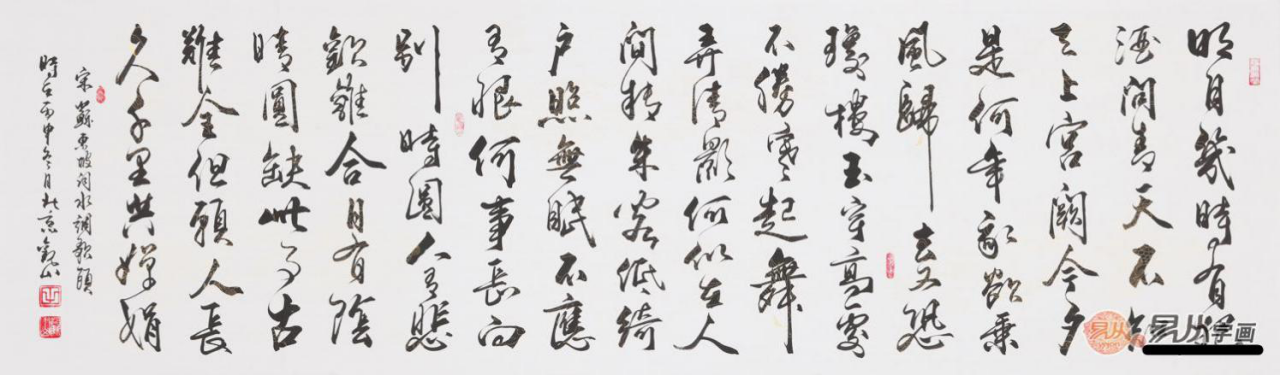 明月幾時有
酒問青天不知
天上宮闕今夕
是何年我欲乘
風歸去又恐
瓊樓玉宇高處
不勝寒起舞
弄清影何似在人
間轉朱閣低綺
戶照無眠不應
有恨何事長向
別時圓人有悲
歡離合月有陰
晴圓缺此事古
難全但願人長
久千里共嬋娟
宋蘇東坡詞水調歌頭
時在丙申冬月北京觀山
易从
易从字画